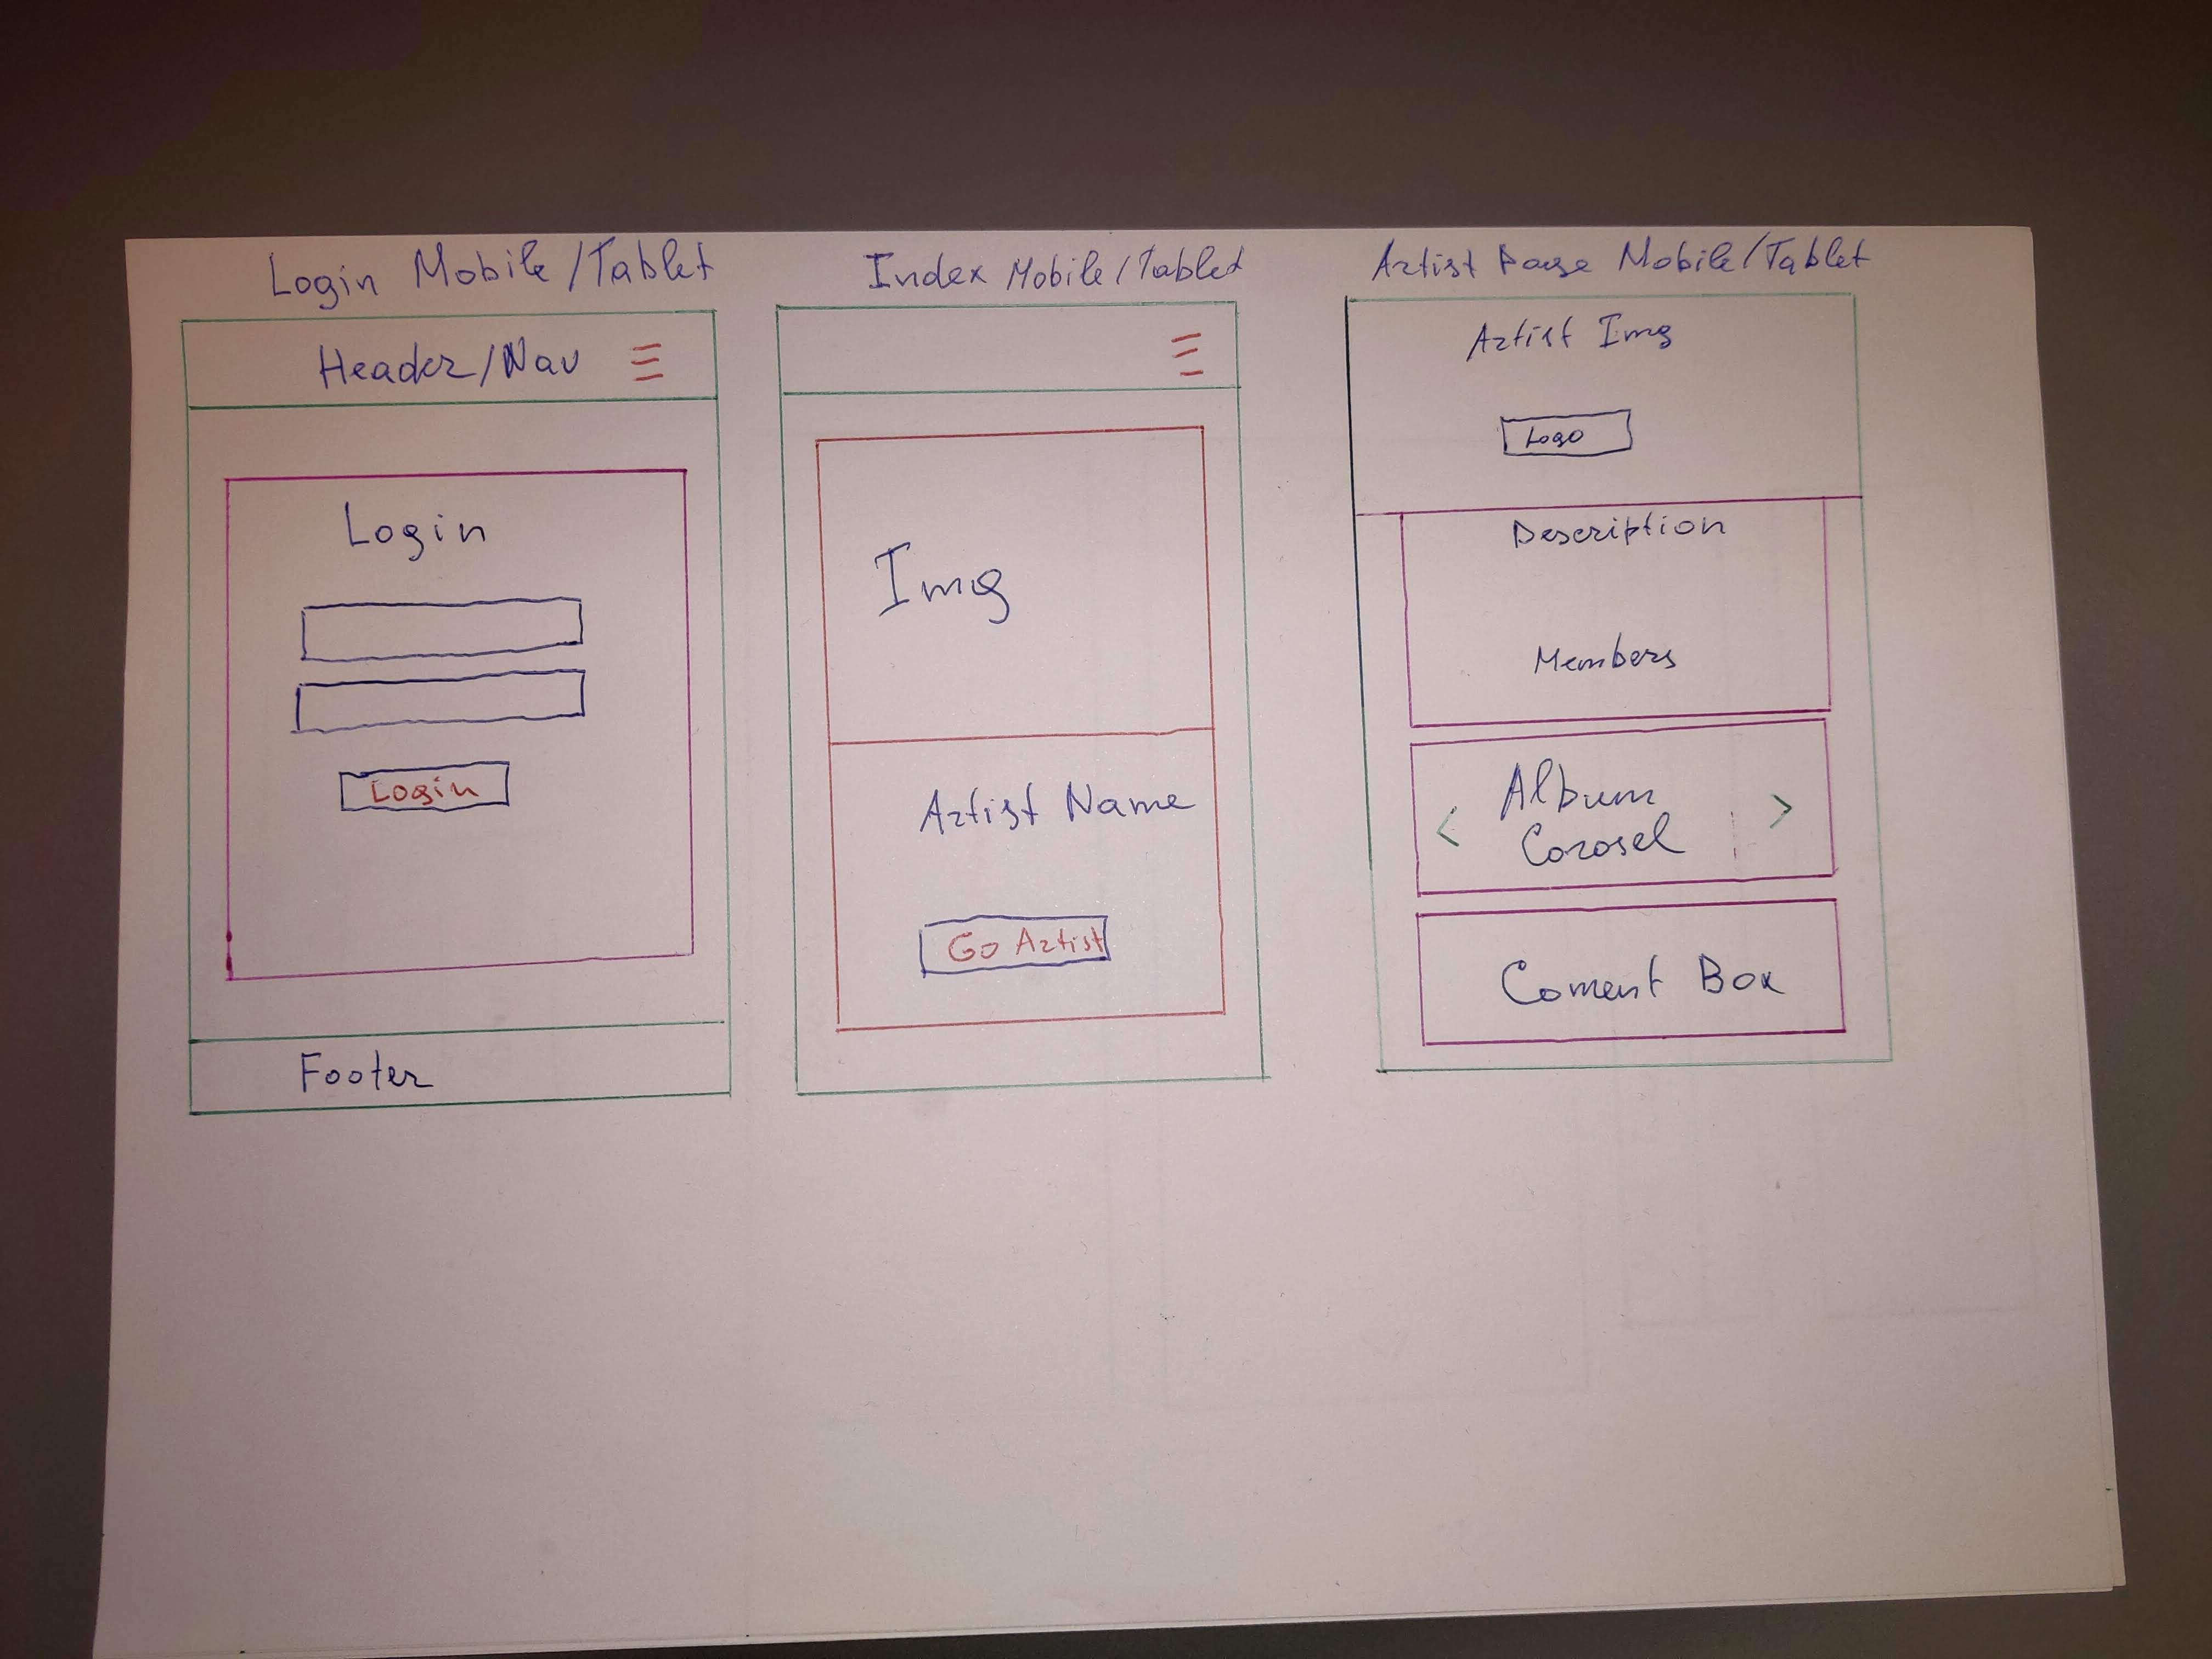 Login Mobile/Tablet
Header/Nav
Login
Login
Footer
Index Mobile/Tablet
Img
Artist Name
Go Artist
Artist Page Mobile/Tablet
Artist Img
Logo
Description
Members
< Album >
Corosel
Coment Box